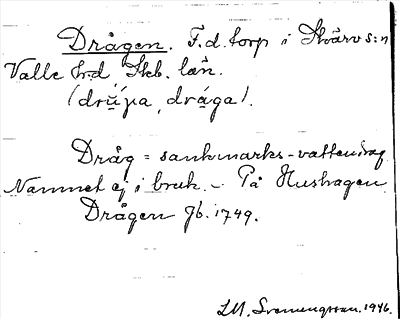 Drågen. F.d. torp i Skärv s:n
Valle h:d Skb. län.
dråga).
Dråg = sankmarks-vattendrag
Namnet ej i bruk. – På Hushagen
Drågen Jb. 1749.
1946.